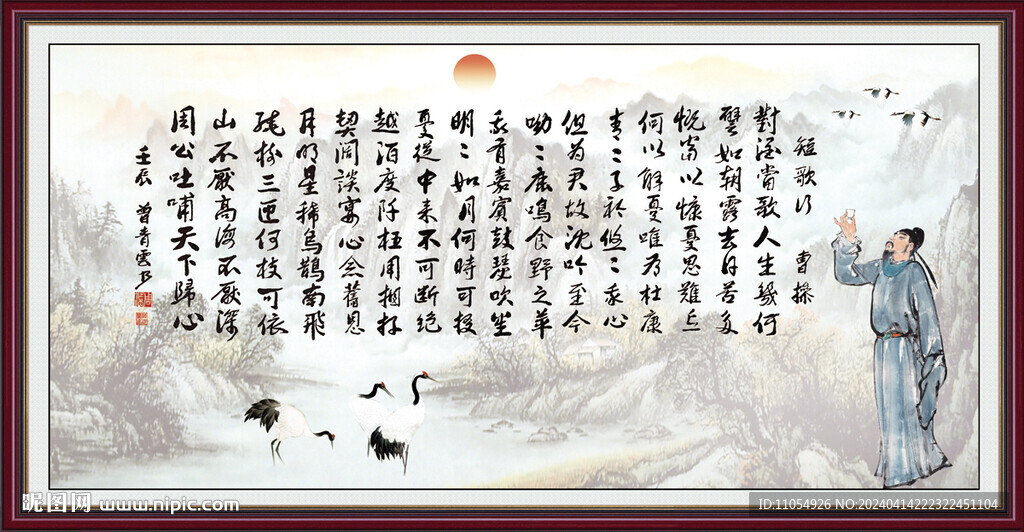 短歌行 曹操
對酒當歌人生幾何
譬如朝露去日苦多
慨當以慷憂思難忘
何以解憂唯有杜康
青〻子衿悠〻我心
但为君故沈吟至今
呦〻鹿鳴食野之苹
我有嘉賓鼓瑟吹笙
明〻如月何時可掇
憂從中来不可断绝
越陌度阡枉用相存
契阔談宴心念舊恩
月明星稀烏鵲南飛
繞樹三匝何枝可依
山不厭高海不厭深
周公吐哺天下歸心
壬辰 曾青雲书
昵图网 www.nipic.com
ID:11054926 NO:20240414222322451104